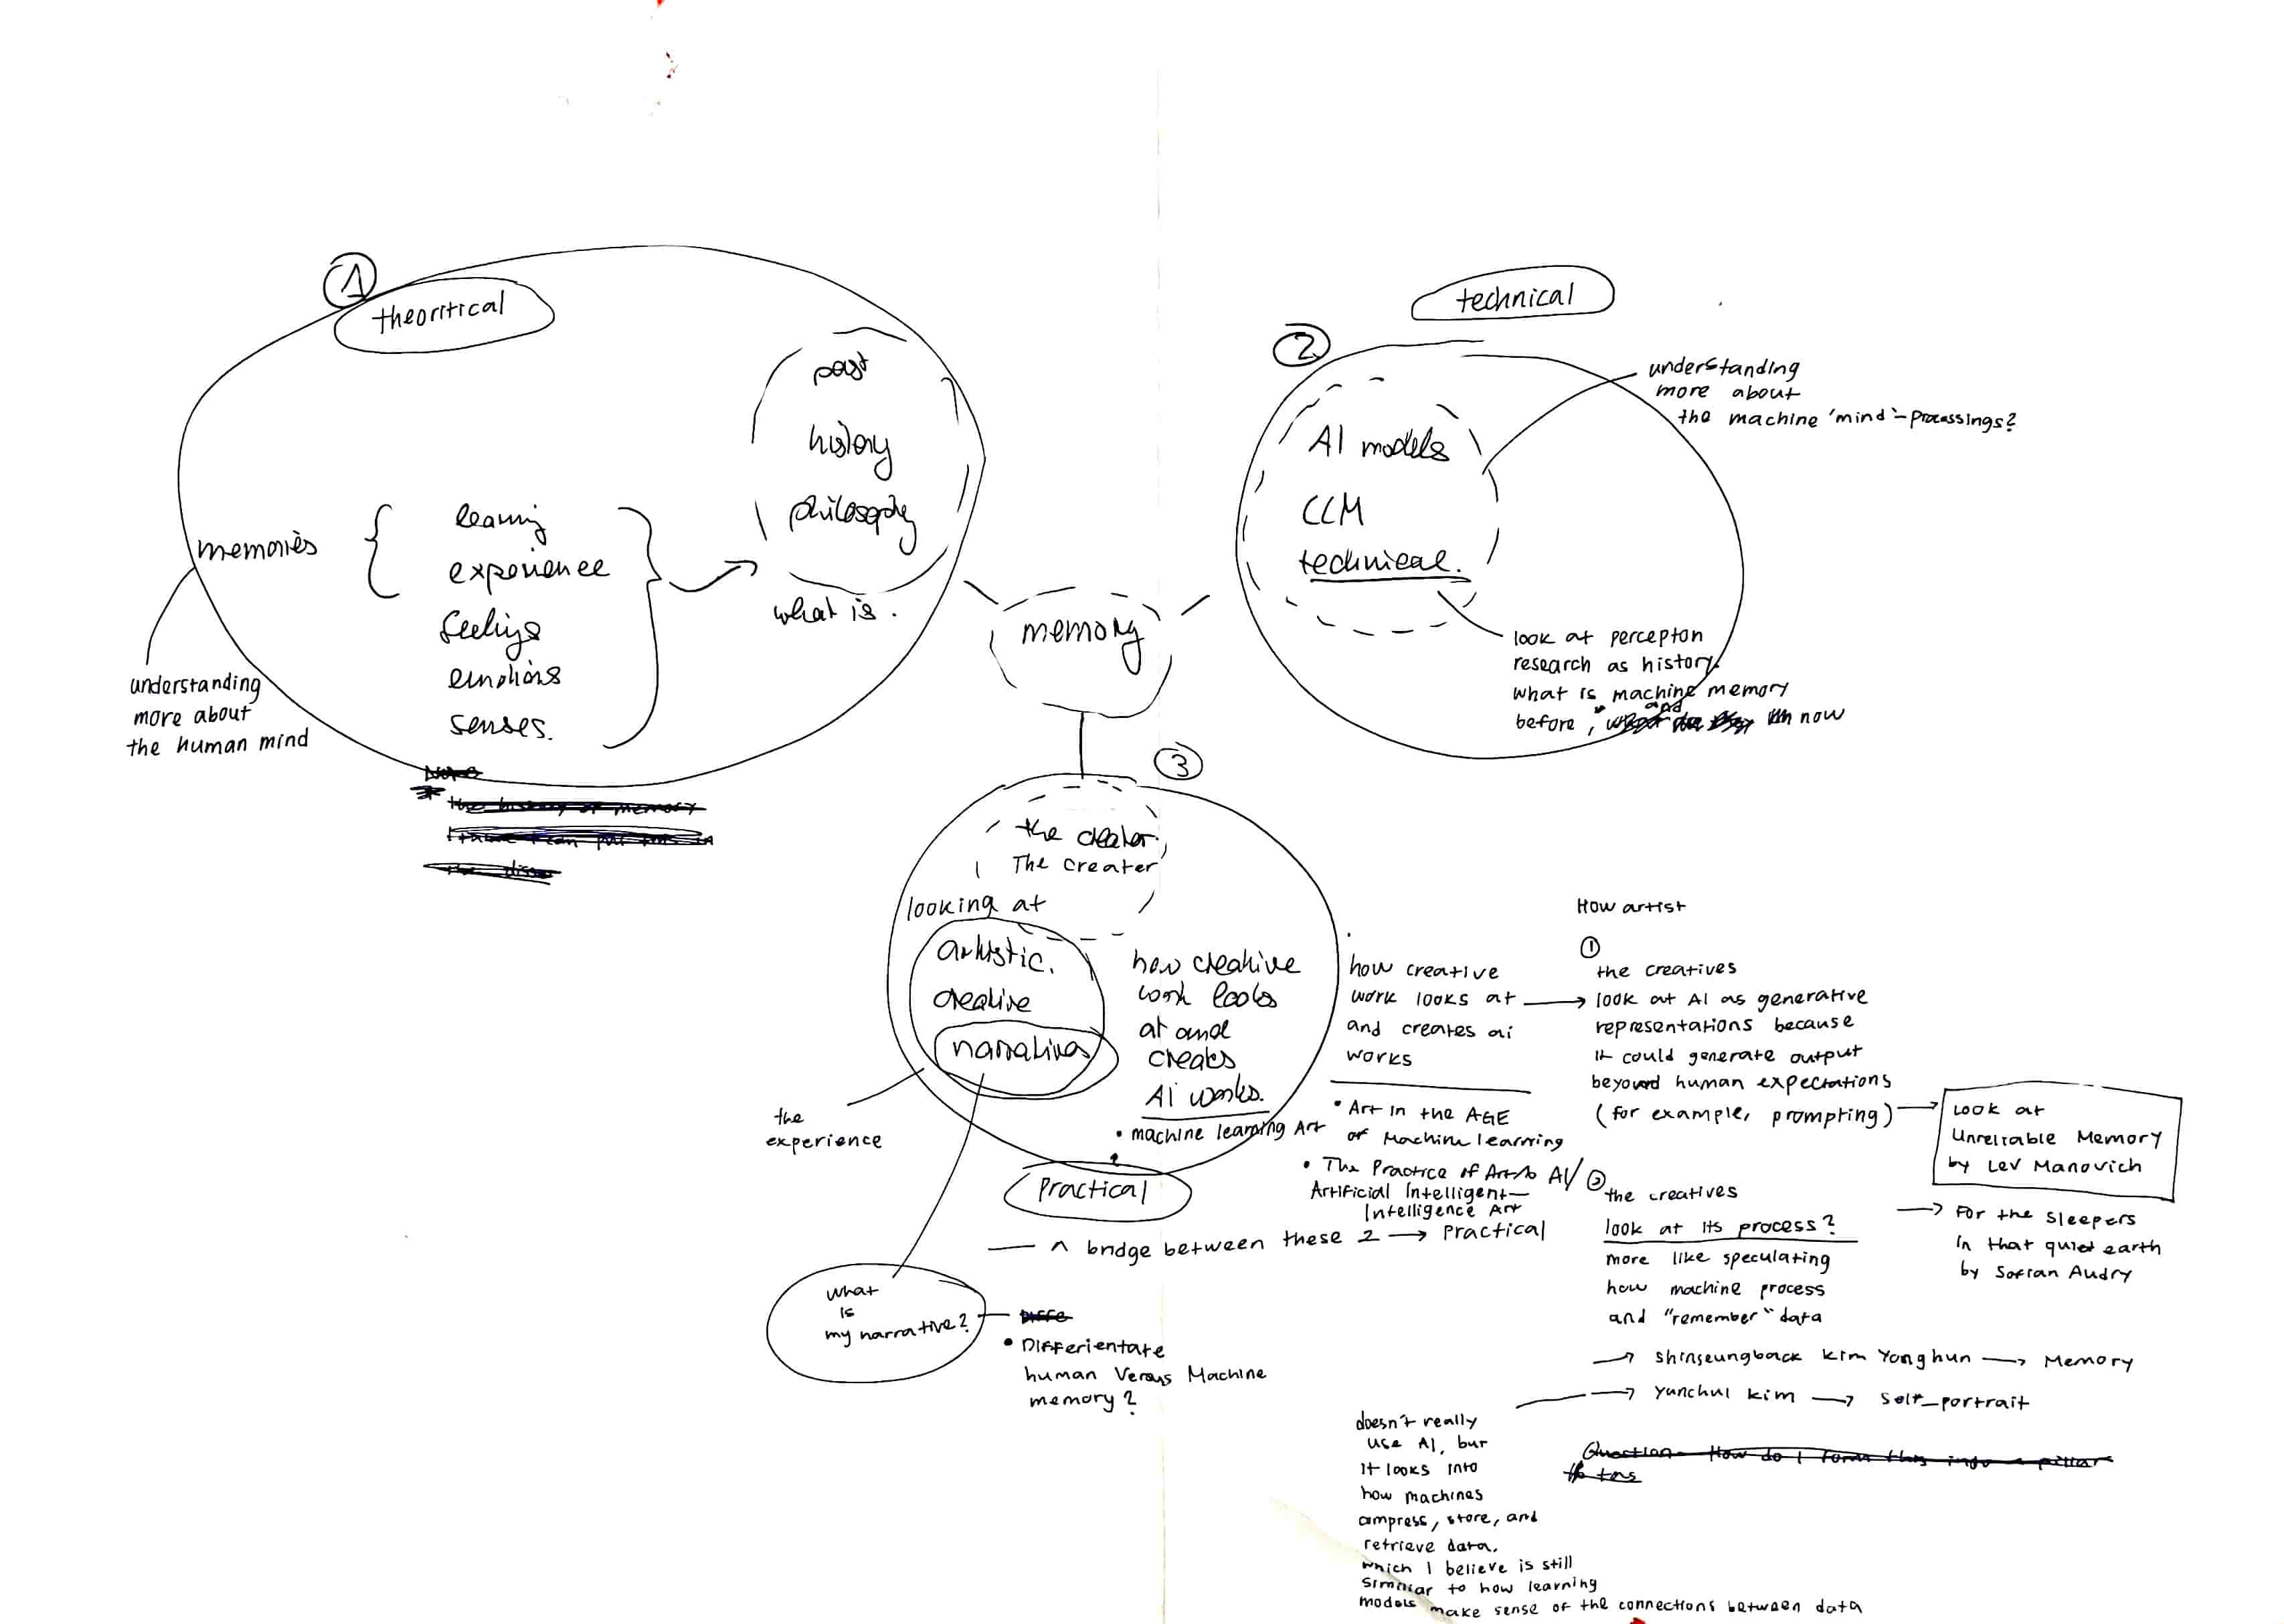 1
theoritical
past
history
philosophy
what is.
memories
learning
experience
feelings
emotions
senses.
understanding
more about
the human mind
memory
technical
2
AI models
CLM
technical.
understanding
more about
the machine 'mind'-processings?
look at percepton
research as history.
what is machine memory
before, and now
3
the creator.
The creater
looking at
artistic.
creative
narratives
how creative
work looks
at and
creates
Ai works.
• machine learning Art
Practical
the
experience
what
is
my narrative?
• Differientate
human versus Machine
memory?
— A bridge between these 2 → Practical
how creative
work looks at
and creates ai
works
• Art in the AGE
of Machine learning
• The Practice of Art & AI/
Artificial Intelligent—
Intelligence Art
How artist
1
the creatives
look at AI as generative
representations because
it could generate output
beyond human expectations
(for example, prompting)
Look at
Unreliable Memory
by Lev Manovich
→ For the Sleepers
in that quiet earth
by Sofian Audry
2
the creatives
look at its process?
more like speculating
how machine process
and "remember" data
→ shinseungback kim Yonghun → Memory
→ yunchul kim → self_portrait
Question How do I form this into a pillar
doesn't really
use AI, but
it looks into
how machines
compress, store, and
retrieve data.
which I believe is still
simmilar to how learning
models make sense of the connections between data